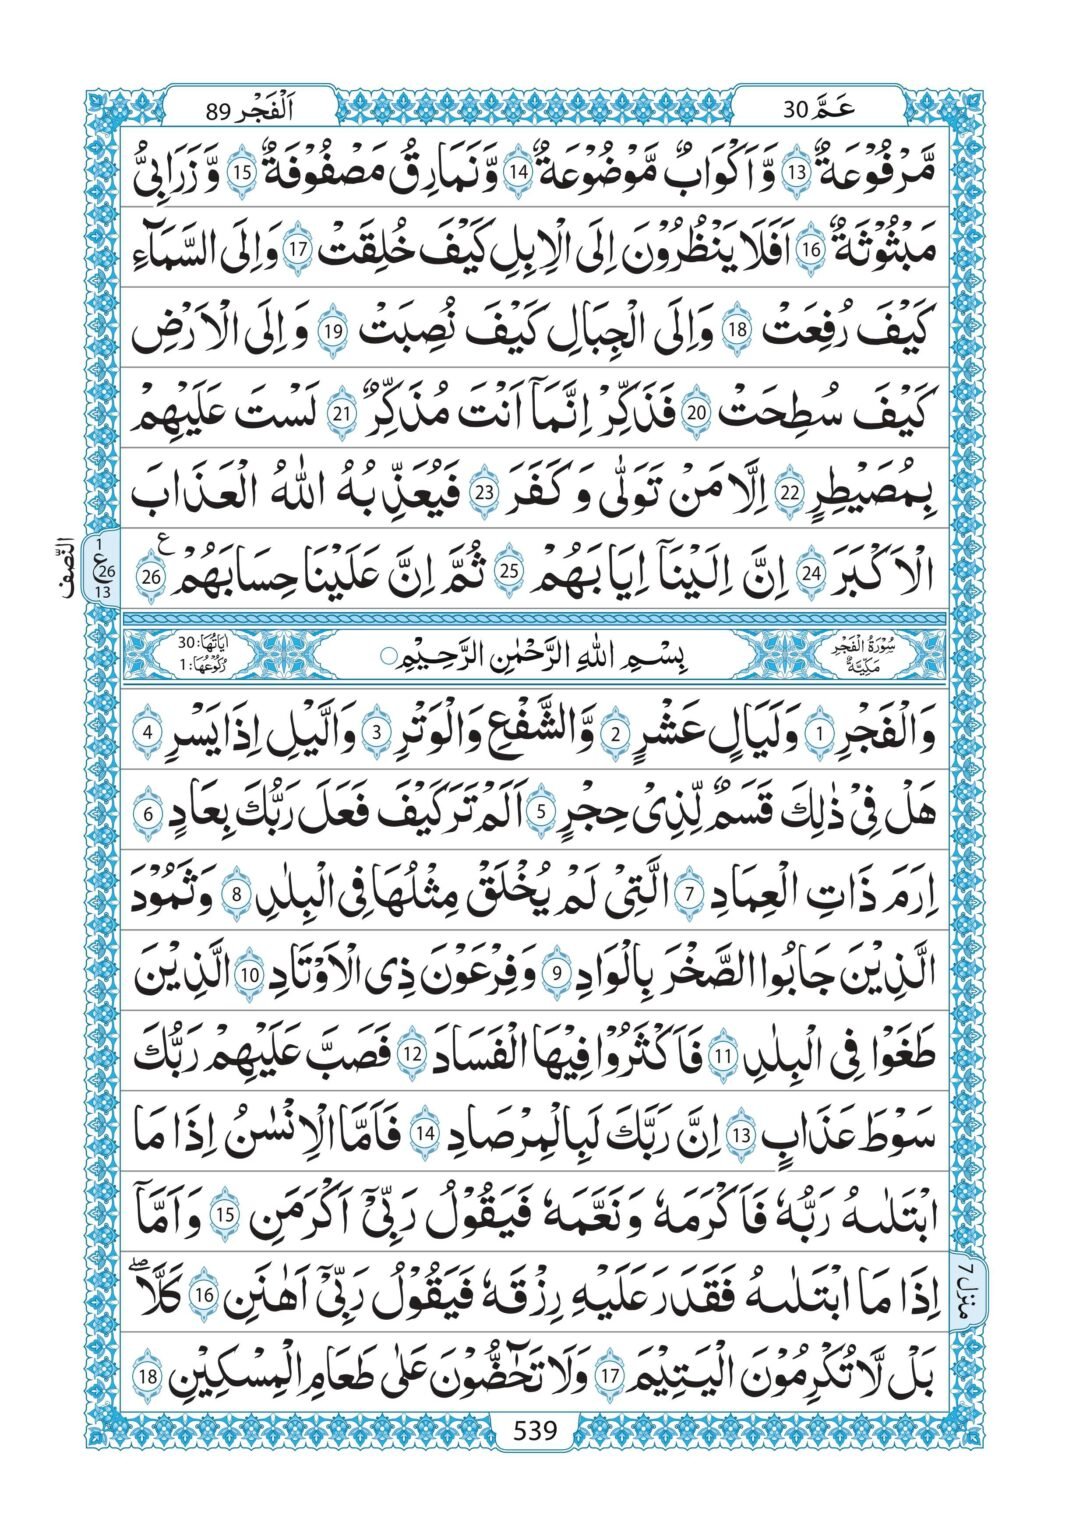 عَمَّ 30
اَلْفَجْر 89
مَّرْفُوْعَةٌ ۙ‏ 13 وَّ اَكْوَابٌ مَّوْضُوْعَةٌ ۙ‏ 14 وَّنَمَارِقُ مَصْفُوْفَةٌ ۙ‏ 15 وَّ زَرَابِىُّ
مَبْثُوْثَةٌ ؕ‏ 16 اَفَلَا يَنْظُرُوْنَ اِلَى الْاِبِلِ كَيْفَ خُلِقَتْ 17 وَاِلَى السَّمَآءِ
كَيْفَ رُفِعَتْ 18 وَاِلَى الْجِبَالِ كَيْفَ نُصِبَتْ 19 وَ اِلَى الْاَرْضِ
كَيْفَ سُطِحَتْ 20 فَذَكِّرْ اِنَّمَآ اَنْتَ مُذَكِّرٌ ؕ‏ 21 لَسْتَ عَلَيْهِمْ
بِمُصَيْطِرٍ 22 اِلَّا مَنْ تَوَلّٰى وَ كَفَرَ 23 فَيُعَذِّبُهُ اللّٰهُ الْعَذَابَ
الْاَكْبَرَ 24 اِنَّ اِلَيْنَآ اِيَابَهُمْ 25 ثُمَّ اِنَّ عَلَيْنَا حِسَابَهُمْ 26 ع
النّصف
1
ع 26
13
سُوْرَةُ الْفَجْرِ مَكِّيَّةٌ
بِسْمِ اللّٰهِ الرَّحْمٰنِ الرَّحِيْمِ
اٰيَاتُهَا: 30
رُكُوْعُهَا: 1
وَالْفَجْرِ 1 وَلَيَالٍ عَشْرٍ 2 وَّالشَّفْعِ وَالْوَتْرِ 3 وَالَّيْلِ اِذَا يَسْرِ 4
هَلْ فِىْ ذٰلِكَ قَسَمٌ لِّذِىْ حِجْرٍ 5 اَلَمْ تَرَ كَيْفَ فَعَلَ رَبُّكَ بِعَادٍ 6
اِرَمَ ذَاتِ الْعِمَادِ 7 الَّتِىْ لَمْ يُخْلَقْ مِثْلُهَا فِى الْبِلٰدِ 8 وَثَمُوْدَ
الَّذِيْنَ جَابُوا الصَّخْرَ بِالْوَادِ 9 وَفِرْعَوْنَ ذِى الْاَوْتَادِ 10 الَّذِيْنَ
طَغَوْا فِى الْبِلٰدِ 11 فَاَكْثَرُوْا فِيْهَا الْفَسَادَ 12 فَصَبَّ عَلَيْهِمْ رَبُّكَ
سَوْطَ عَذَابٍ 13 اِنَّ رَبَّكَ لَبِالْمِرْصَادِ 14 فَاَمَّا الْاِنْسٰنُ اِذَا مَا
ابْتَلٰىهُ رَبُّهٗ فَاَكْرَمَهٗ وَنَعَّمَهٗ فَيَقُوْلُ رَبِّىْٓ اَكْرَمَنِ 15 وَاَمَّآ
اِذَا مَا ابْتَلٰىهُ فَقَدَرَ عَلَيْهِ رِزْقَهٗ فَيَقُوْلُ رَبِّىْٓ اَهَانَنِ 16 كَلَّا ۖ
منزل 7
بَلْ لَّا تُكْرِمُوْنَ الْيَتِيْمَ 17 وَلَا تَحٰٓضُّوْنَ عَلٰى طَعَامِ الْمِسْكِيْنِ 18
539